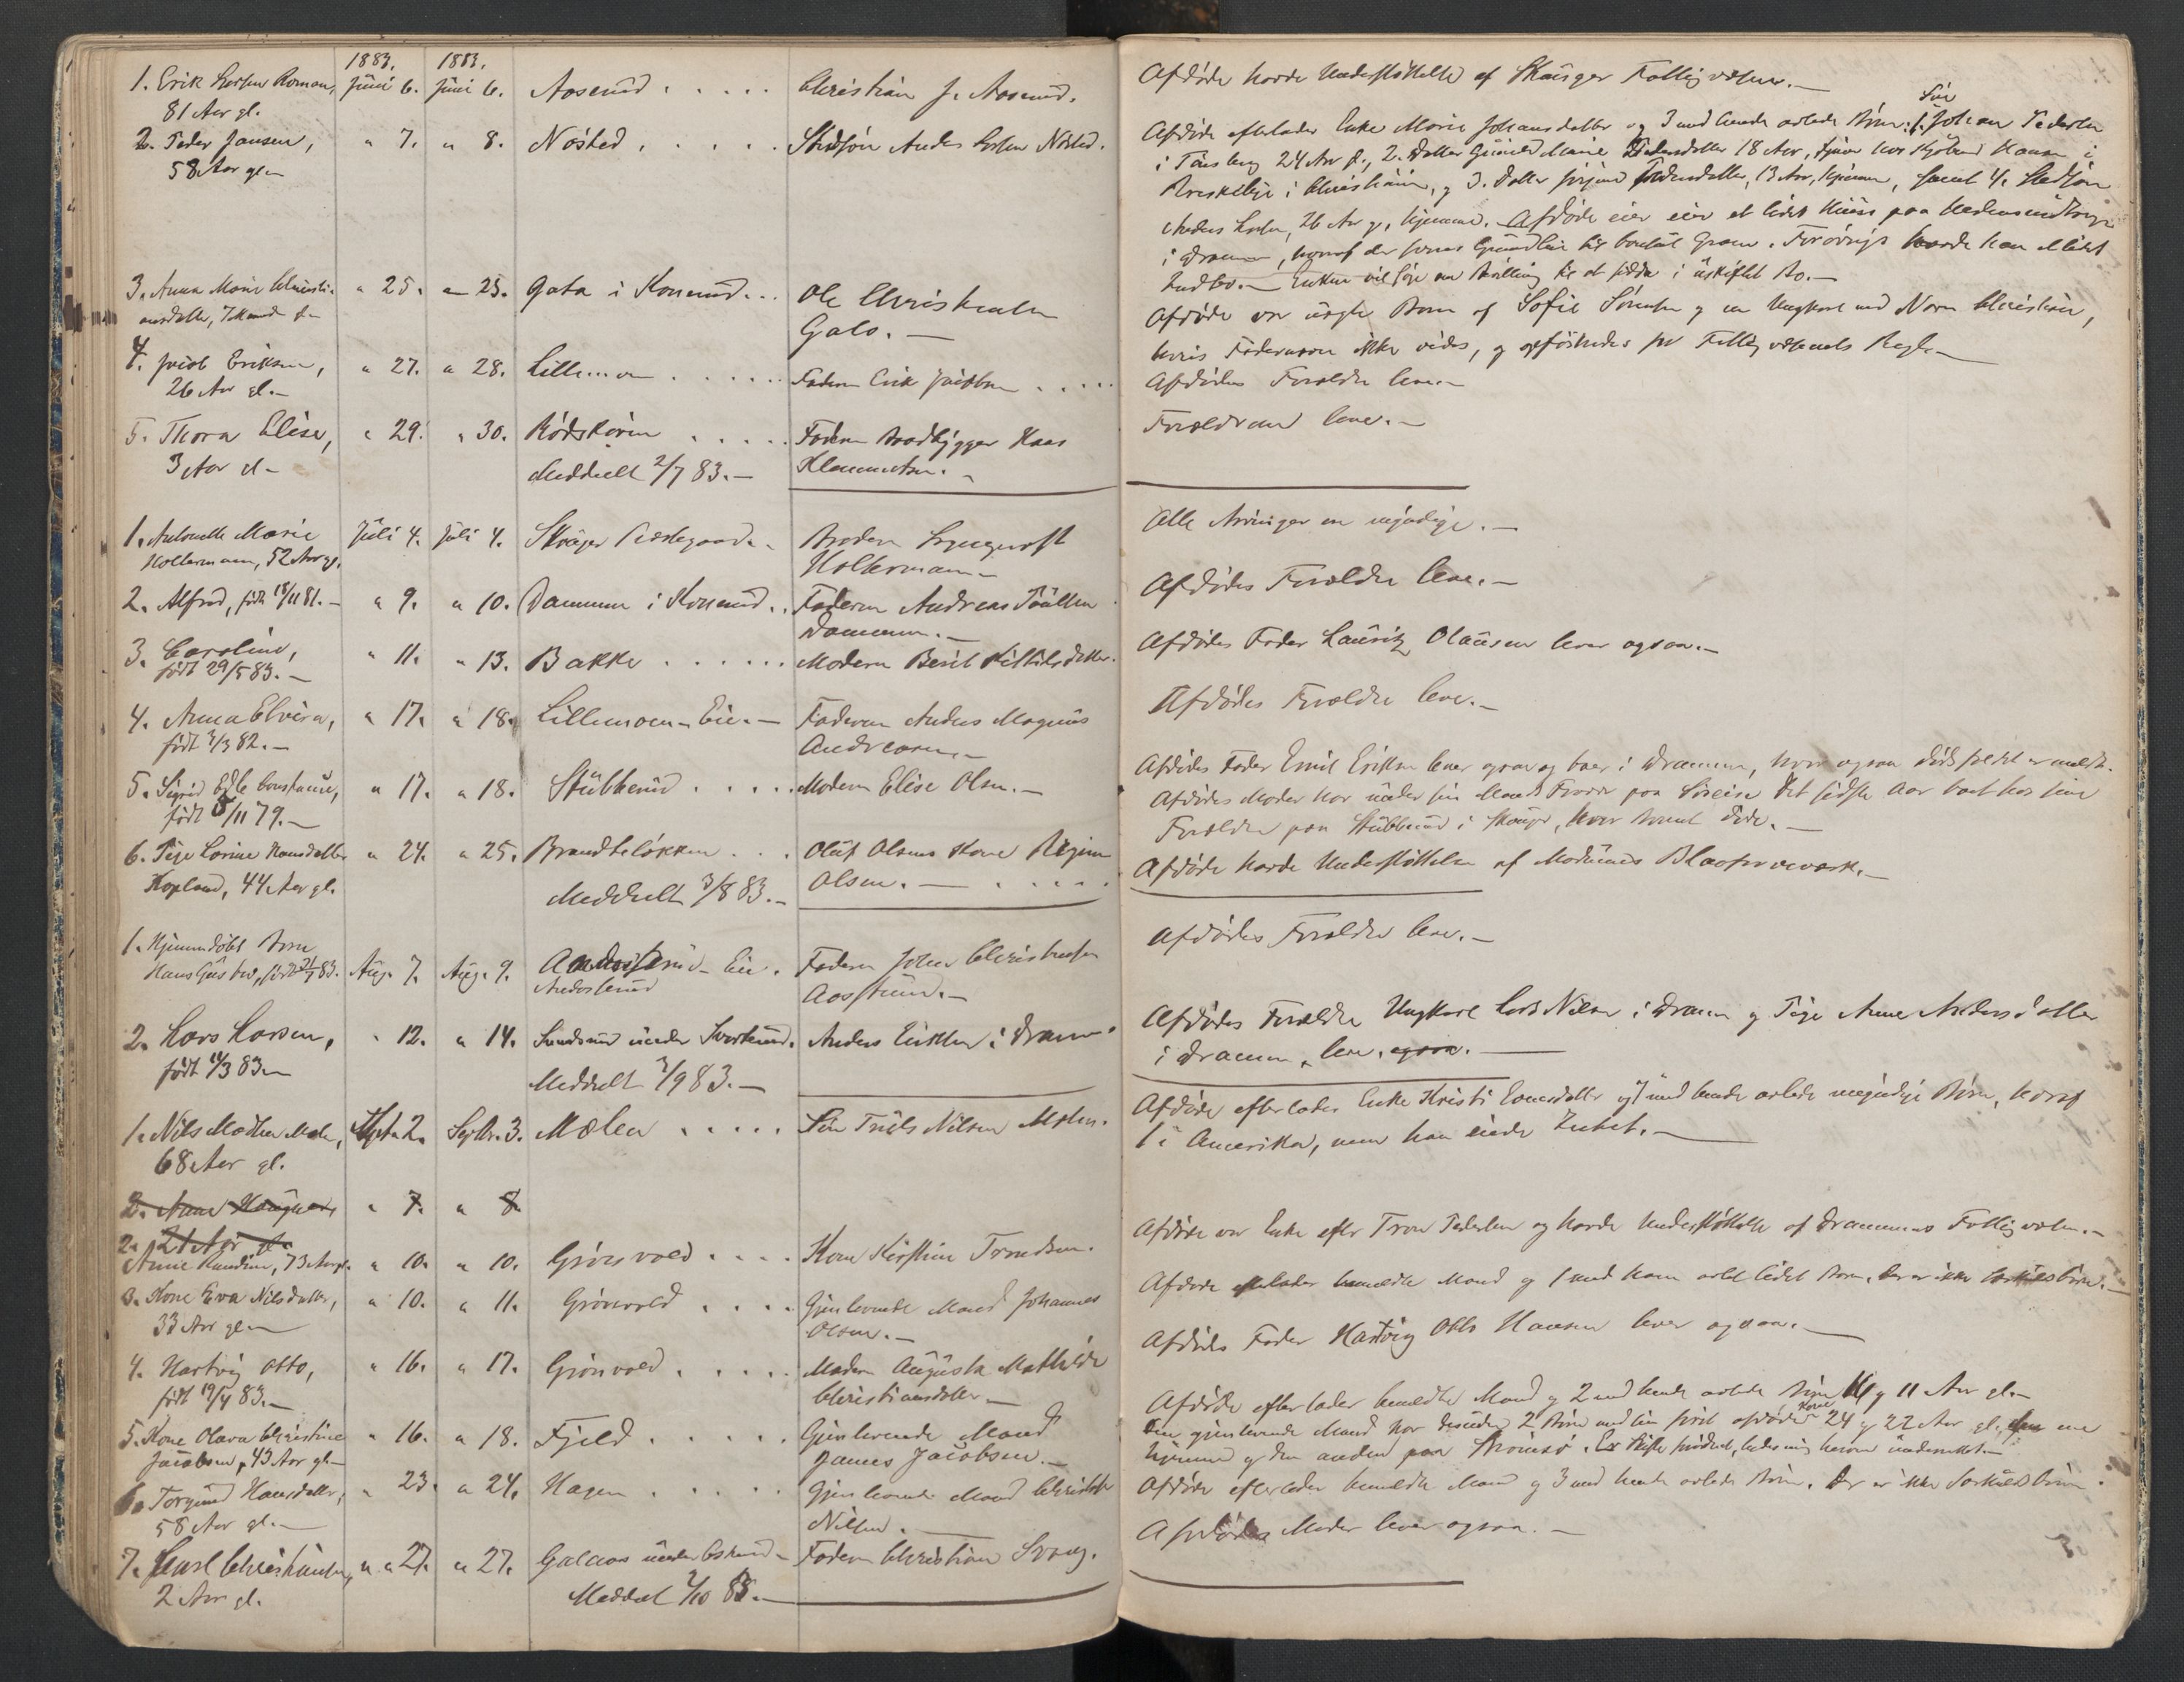 1883. 1883.
1. Erik Larsen Roman, Juni 6. Juni 6. Aaserud . . . . . Christian J. Aaserud. Afdøde havde Understøttelse af Skauger Fattigvæsen.—
81 Aar gl.
2. Peder Jansen, " 7. " 8. Nøsted . . . . . Stedsøn Anders Larsen Nøsted. Afdøde efterlader Enke Marie Johansdatter og 3 med hende avlede Børn: 1. Søn Johan Pedersen
58 Aar gl.— i Tønsberg 24 Aar gl., 2. Datter Gunhild Marie Pedersdatter 18 Aar, tjener hos Kjøbmd Hansen i
i Christiania, og 3. Datter Pedersdatter, 13 Aar, hjemme, samt 4. Stedsøn
Anders Larsen, 26 Aar gl., hjemme. Afdøde eier et lidet Huus paa
i Drammen, hvoraf der svares Grundleie til Gram. Forøvrigt havde han lidet
Indbo.— Enken vil søge om Bevilling til at sidde i uskiftet Bo.—
3. Anna Marie Christi- " 25. " 25. Gata i Konnerud . . . Ole Christensen Afdøde var uægte Barn af Sofie Sørensen og en Ungkarl ved Navn Christian,
ansdatter, 7 Maaned gl.— Gata.— hvis Fadernavn ikke vides, og opfostredes for Fattigvæsenets Regn.—
4. Jacob Eriksen, " 27. " 28. Lillemoen . . . . . Faderen Erik Jacobsen . . . . Afdødes Forældre leve.—
26 Aar gl.—
5. Thora Elise, " 29. " 30. Rødskøren . . . . . Faderen Baadbygger Hans Forældrene leve.—
3 Aar gl— Meddeelt 2/7 83.— Klemmetsen.—
1. Antonette Marie Juli 4. Juli 4. Skauger Præstegaard.. Broderen Sogneprest Alle Arvinger ere myndige.—
Holtermann, 52 Aar gl. Holtermann.—
2. Alfred, født 18/11 81.— " 9. " 10. Dammen i Konnerud.. Faderen Andreas Paulsen Afdødes Forældre leve.—
Dammen.—
3. Caroline, " 11. " 13. Bakke . . . . . . Moderen Berit Kittilsdatter. Afdødes Fader Lauritz Olausen lever ogsaa.—
født 29/5 83.—
4. Anna Elvira, " 17. " 18. Lillemoen-Eie.— Faderen Anders Magnus Afdødes Forældre leve.—
født 3/3 82.— Andreasen.—
5. Sigrid Edle Constance, " 17. " 18. Stubberud . . . . . Moderen Elise Olsen.— Afdødes Fader Emil Eriksen lever ogsaa og boer i Drammen, hvor ogsaa Dødsfaldet er meldt.
født 5/11 79.— Afdødes Moder har under sin Mands Fravær paa Søreise det sidste Aar boet hos sine
Forældre paa Stubberud i Skauger, hvor Barnet døde.—
6. Pige Karine Hansdatter " 24. " 25. Brandteløkken . . . Oluf Olsens Kone Regine Afdøde havde Understøttelse af Modums Blaafarveværk.—
Kopland, 44 Aar gl. Meddeelt 3/8 83.— Olsen.— . . . .
1. Hjemmedøbt Barn
Hans Gustav, født 31/7 83. Aug. 7. Aug. 9. -Eie. Faderen Johan Christensen Afdødes Forældre leve.—
Anderserud Aasstuen.—
2. Lars Larsen, " 12. " 14. under . Anders Eriksen i Dramn. Afdødes Forældre Ungkarl Lars Nilsen i Dramn og Pige Anne Andersdatter
født 14/3 83.— Meddeelt 3/9 83.— i Drammen, leve, ogsaa.—
1. Nils Madsen Mælen, Septr. 2. Septbr. 3. Mælen . . . . . Søn Truls Nilsen Mælen. Afdøde efterlader Enke Kristi Evensdatter og 7 med hende avlede myndige Børn, hvoraf
68 Aar gl. 1 i Amerika, men han eiede Intet.—
2. Anne Haugers " 7. " 8.
21 Aar gl.
2. Anne Knudsen, 73 Aar gl. " 10. " 10. Grønvold . . . . Kone Kirstine Trondsen. Afdøde var Enke efter Tron Pedersen og havde Understøttelse af Drammens Fattigvæsen.—
3. Kone Eva Nilsdatter, " 10. " 11. Grønvold . . . . Gjenlevende Mand Johannes Afdøde efterlader bemeldte Mand og 1 med ham avlet lidet Barn, der er ikke Særkuldsbørn.—
33 Aar gl.— Olsen.—
4. Hartvig Otto, " 16. " 17. Grønvold . . . . . Moderen Augusta Mathilde Afdødes Fader Hartvig Otto Hansen lever ogsaa.—
født 19/4 83.— Christiansdatter.—
5. Kone Olava Christine " 16. " 18. Fjeld . . . . . Gjenlevende Mand Afdøde efterlader bemeldte Mand og 2 med hende avlede Børn og 11 Aar gl.—
Jacobsen, 43 Aar gl— James Jacobsen.— Den gjenlevende Mand har desuden 2 Børn med sin først afdøde Kone 24 og 22 Aar gl. den ene
hjemme og den anden paa Strømsø. Er Skifte fornødent, bedes mig herom underrettet.—
6. Torgund Hansdatter, " 23. " 24. Hagen . . . . . Gjenlevende Mand Christen Afdøde efterlader bemeldte Mand og 3 med hende avlede Børn. Der er ikke Særkuldsbørn.
58 Aar gl.— Nilsen.—
7. Karl Christiansen, " 27. " 27. Galaas under – Faderen Christian Svang. Afdødes Moder lever ogsaa.—
2 Aar gl. Meddeelt 2/10 83.—